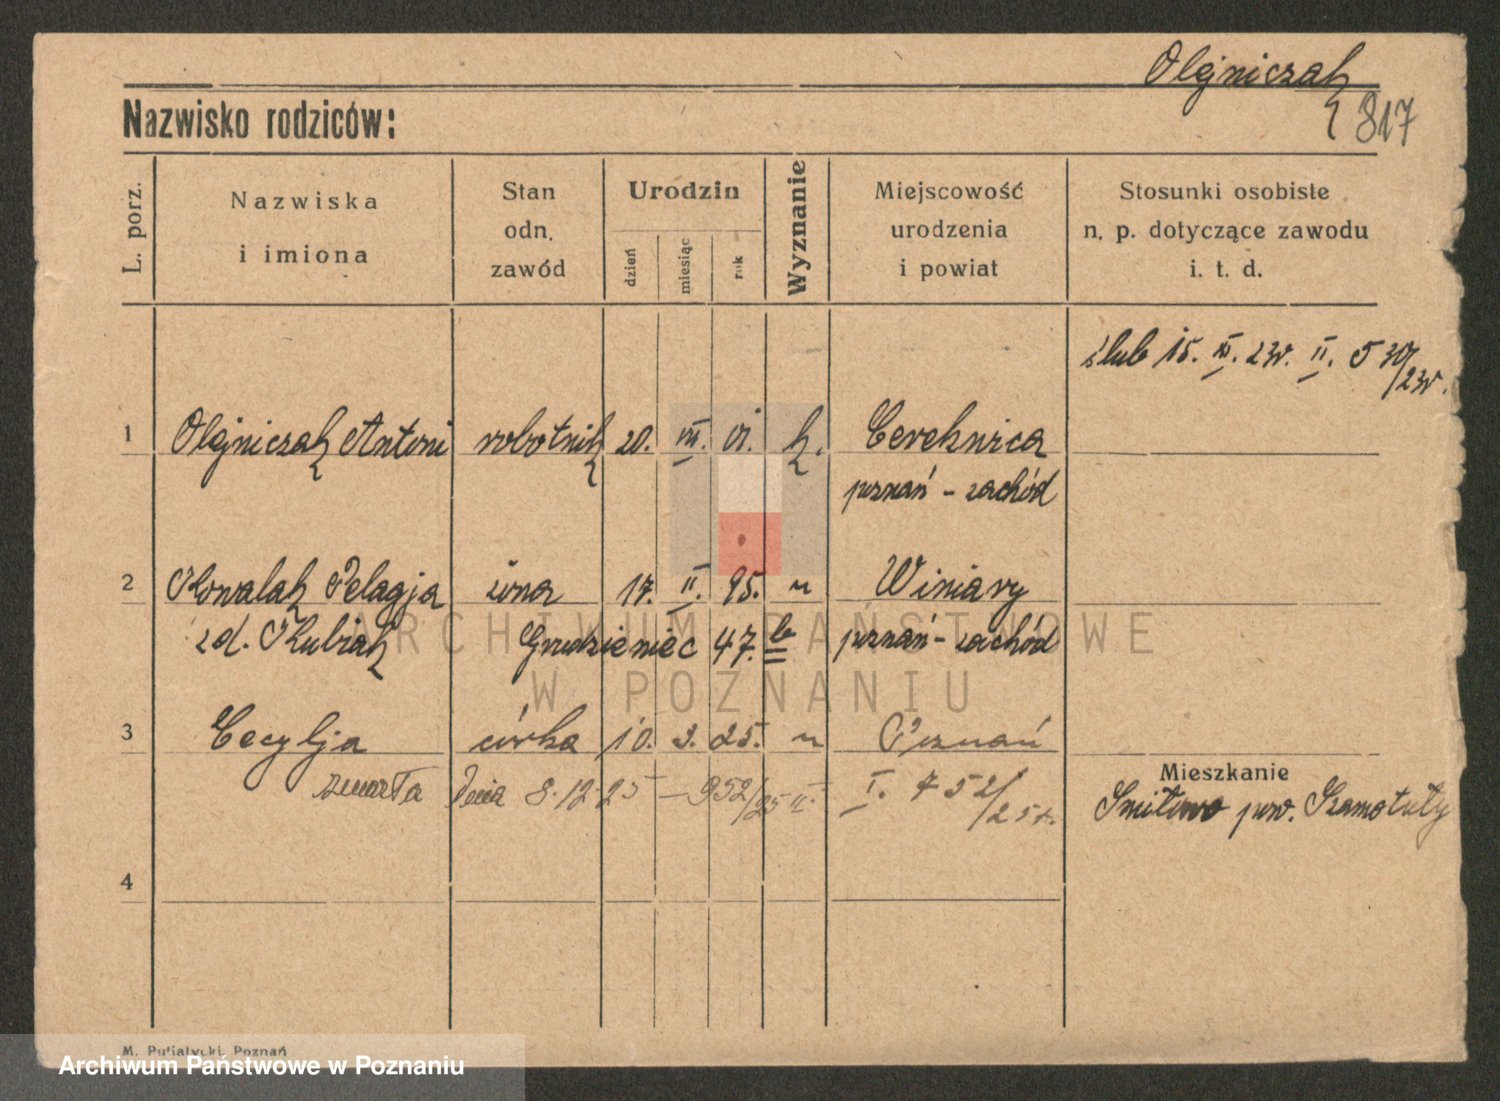 Olejniczak
817
Nazwisko rodziców:
L. porz.
Nazwiska
i imiona
Stan
odn.
zawód
Urodzin
dzień
miesiąc
rok
Wyznanie
Miejscowość
urodzenia
i powiat
Stosunki osobiste
n. p. dotyczące zawodu
i. t. d.
ślub 15. XI. 23r. II. 530/23r.
1 Olejniczak Antoni robotnik 20. VII. 01. k. Cereknica
poznań - zachód
2 Kowalak Pelagja żona 17. II. 95. " Winiary
zd. Kubiak Grudzieniec 47. b poznań - zachód
3 Cecylja córka 10. 3. 25. " Poznań
zmarła dnia 8.12.25 - 952/25 II. I. 752/25r.
Mieszkanie
pow. Szamotuły
4
ARCHIWUM PAŃSTWOWE
W POZNANIU
M. Putiatycki, Poznań
Archiwum Państwowe w Poznaniu